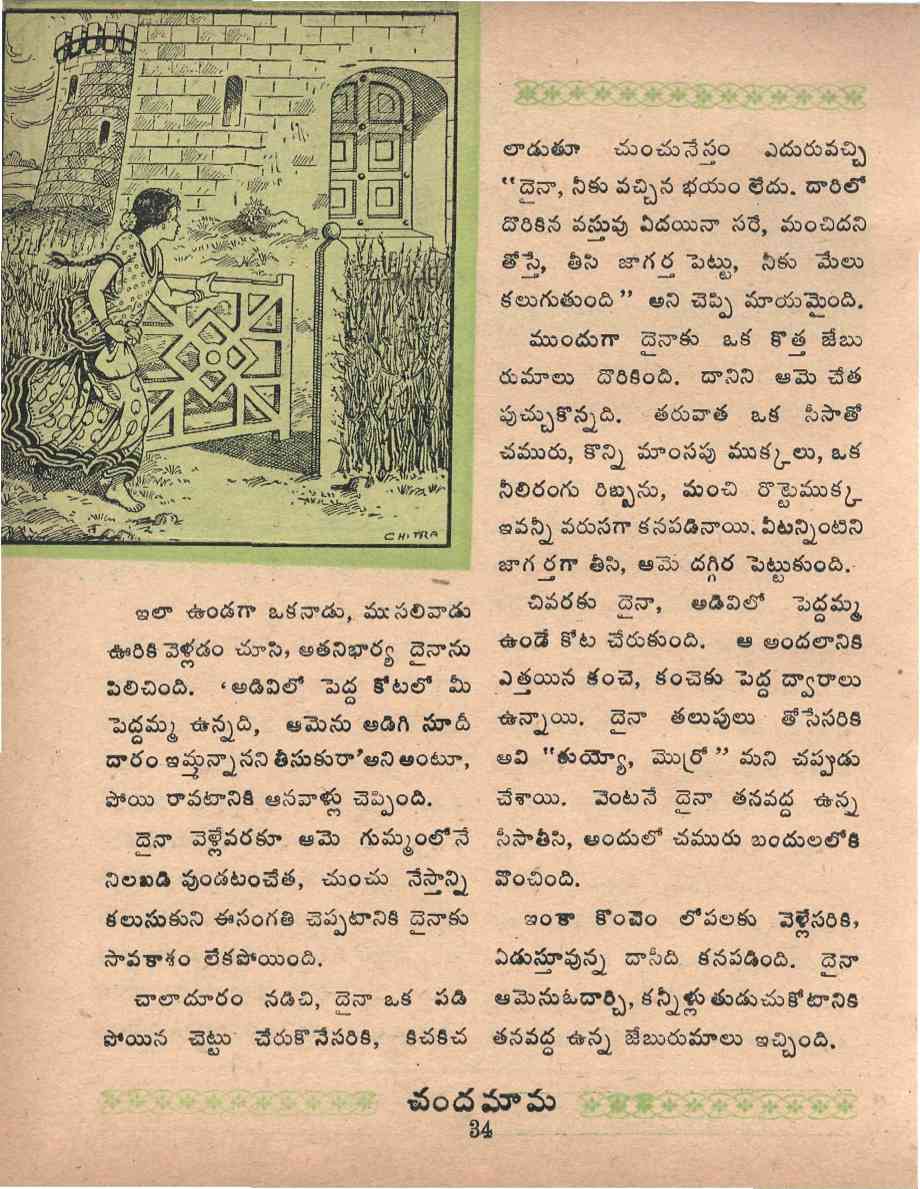 CHITRA
ఇలా ఉండగా ఒకనాడు, ముసలివాడు
ఊరికి వెళ్లడం చూసి, అతనిభార్య దైనాను
పిలిచింది. ‘అడివిలో పెద్ద కోటలో మీ
పెద్దమ్మ ఉన్నది, ఆమెను అడిగి సూదీ
దారం ఇమ్మన్నానని తీసుకురా’అని అంటూ,
పోయి రావటానికి ఆనవాళ్లు చెప్పింది.
దైనా వెళ్లేవరకూ ఆమె గుమ్మంలోనే
నిలబడి వుండటంచేత, చుంచు నేస్తాన్ని
కలుసుకుని ఈసంగతి చెప్పటానికి దైనాకు
సావకాశం లేకపోయింది.
చాలాదూరం నడిచి, దైనా ఒక పడి
పోయిన చెట్టు చేరుకొనేసరికి, కిచకిచ
లాడుతూ చుంచునేస్తం ఎదురువచ్చి
“దైనా, నీకు వచ్చిన భయం లేదు. దారిలో
దొరికిన వస్తువు ఏదయినా సరే, మంచిదని
తోస్తే, తీసి జాగర్త పెట్టు, నీకు మేలు
కలుగుతుంది” అని చెప్పి మాయమైంది.
ముందుగా దైనాకు ఒక కొత్త జేబు
రుమాలు దొరికింది. దానిని ఆమె చేత
పుచ్చుకొన్నది. తరువాత ఒక సీసాతో
చమురు, కొన్ని మాంసపు ముక్కలు, ఒక
నీలిరంగు రిబ్బను, మంచి రొట్టెముక్క
ఇవన్నీ వరుసగా కనపడినాయి. వీటన్నింటిని
జాగర్తగా తీసి, ఆమె దగ్గిర పెట్టుకుంది.
చివరకు దైనా, అడివిలో పెద్దమ్మ
ఉండే కోట చేరుకుంది. ఆ అందలానికి
ఎత్తయిన కంచె, కంచెకు పెద్ద ద్వారాలు
ఉన్నాయి. దైనా తలుపులు తోసేసరికి
అవి “కుయ్యో, మొర్రో” మని చప్పుడు
చేశాయి. వెంటనే దైనా తనవద్ద ఉన్న
సీసాతీసి, అందులో చమురు బందులలోకి
వొంచింది.
ఇంకా కొంచెం లోపలకు వెళ్లేసరికి,
ఏడుస్తూవున్న దాసీది కనపడింది. దైనా
ఆమెనుఓదార్చి, కన్నీళ్లు తుడుచుకోటానికి
తనవద్ద ఉన్న జేబురుమాలు ఇచ్చింది.
చందమామ
34